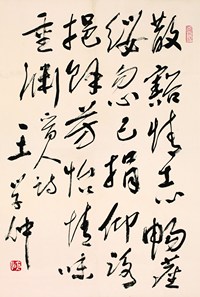 散豁情志暢塵
纓忽已捐仰詠
挹餘芳怡情味
重淵 晉人詩
王學仲